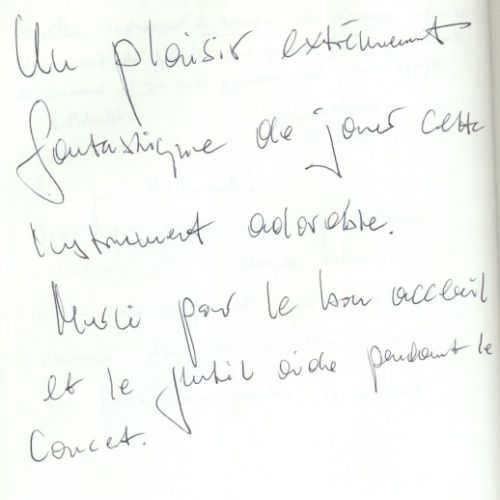 Un plaisir extrêmement
fantastique de jouer cette
instrument adorable.
Mersi par le bon acceuil
et le aide pendant le
Concet.